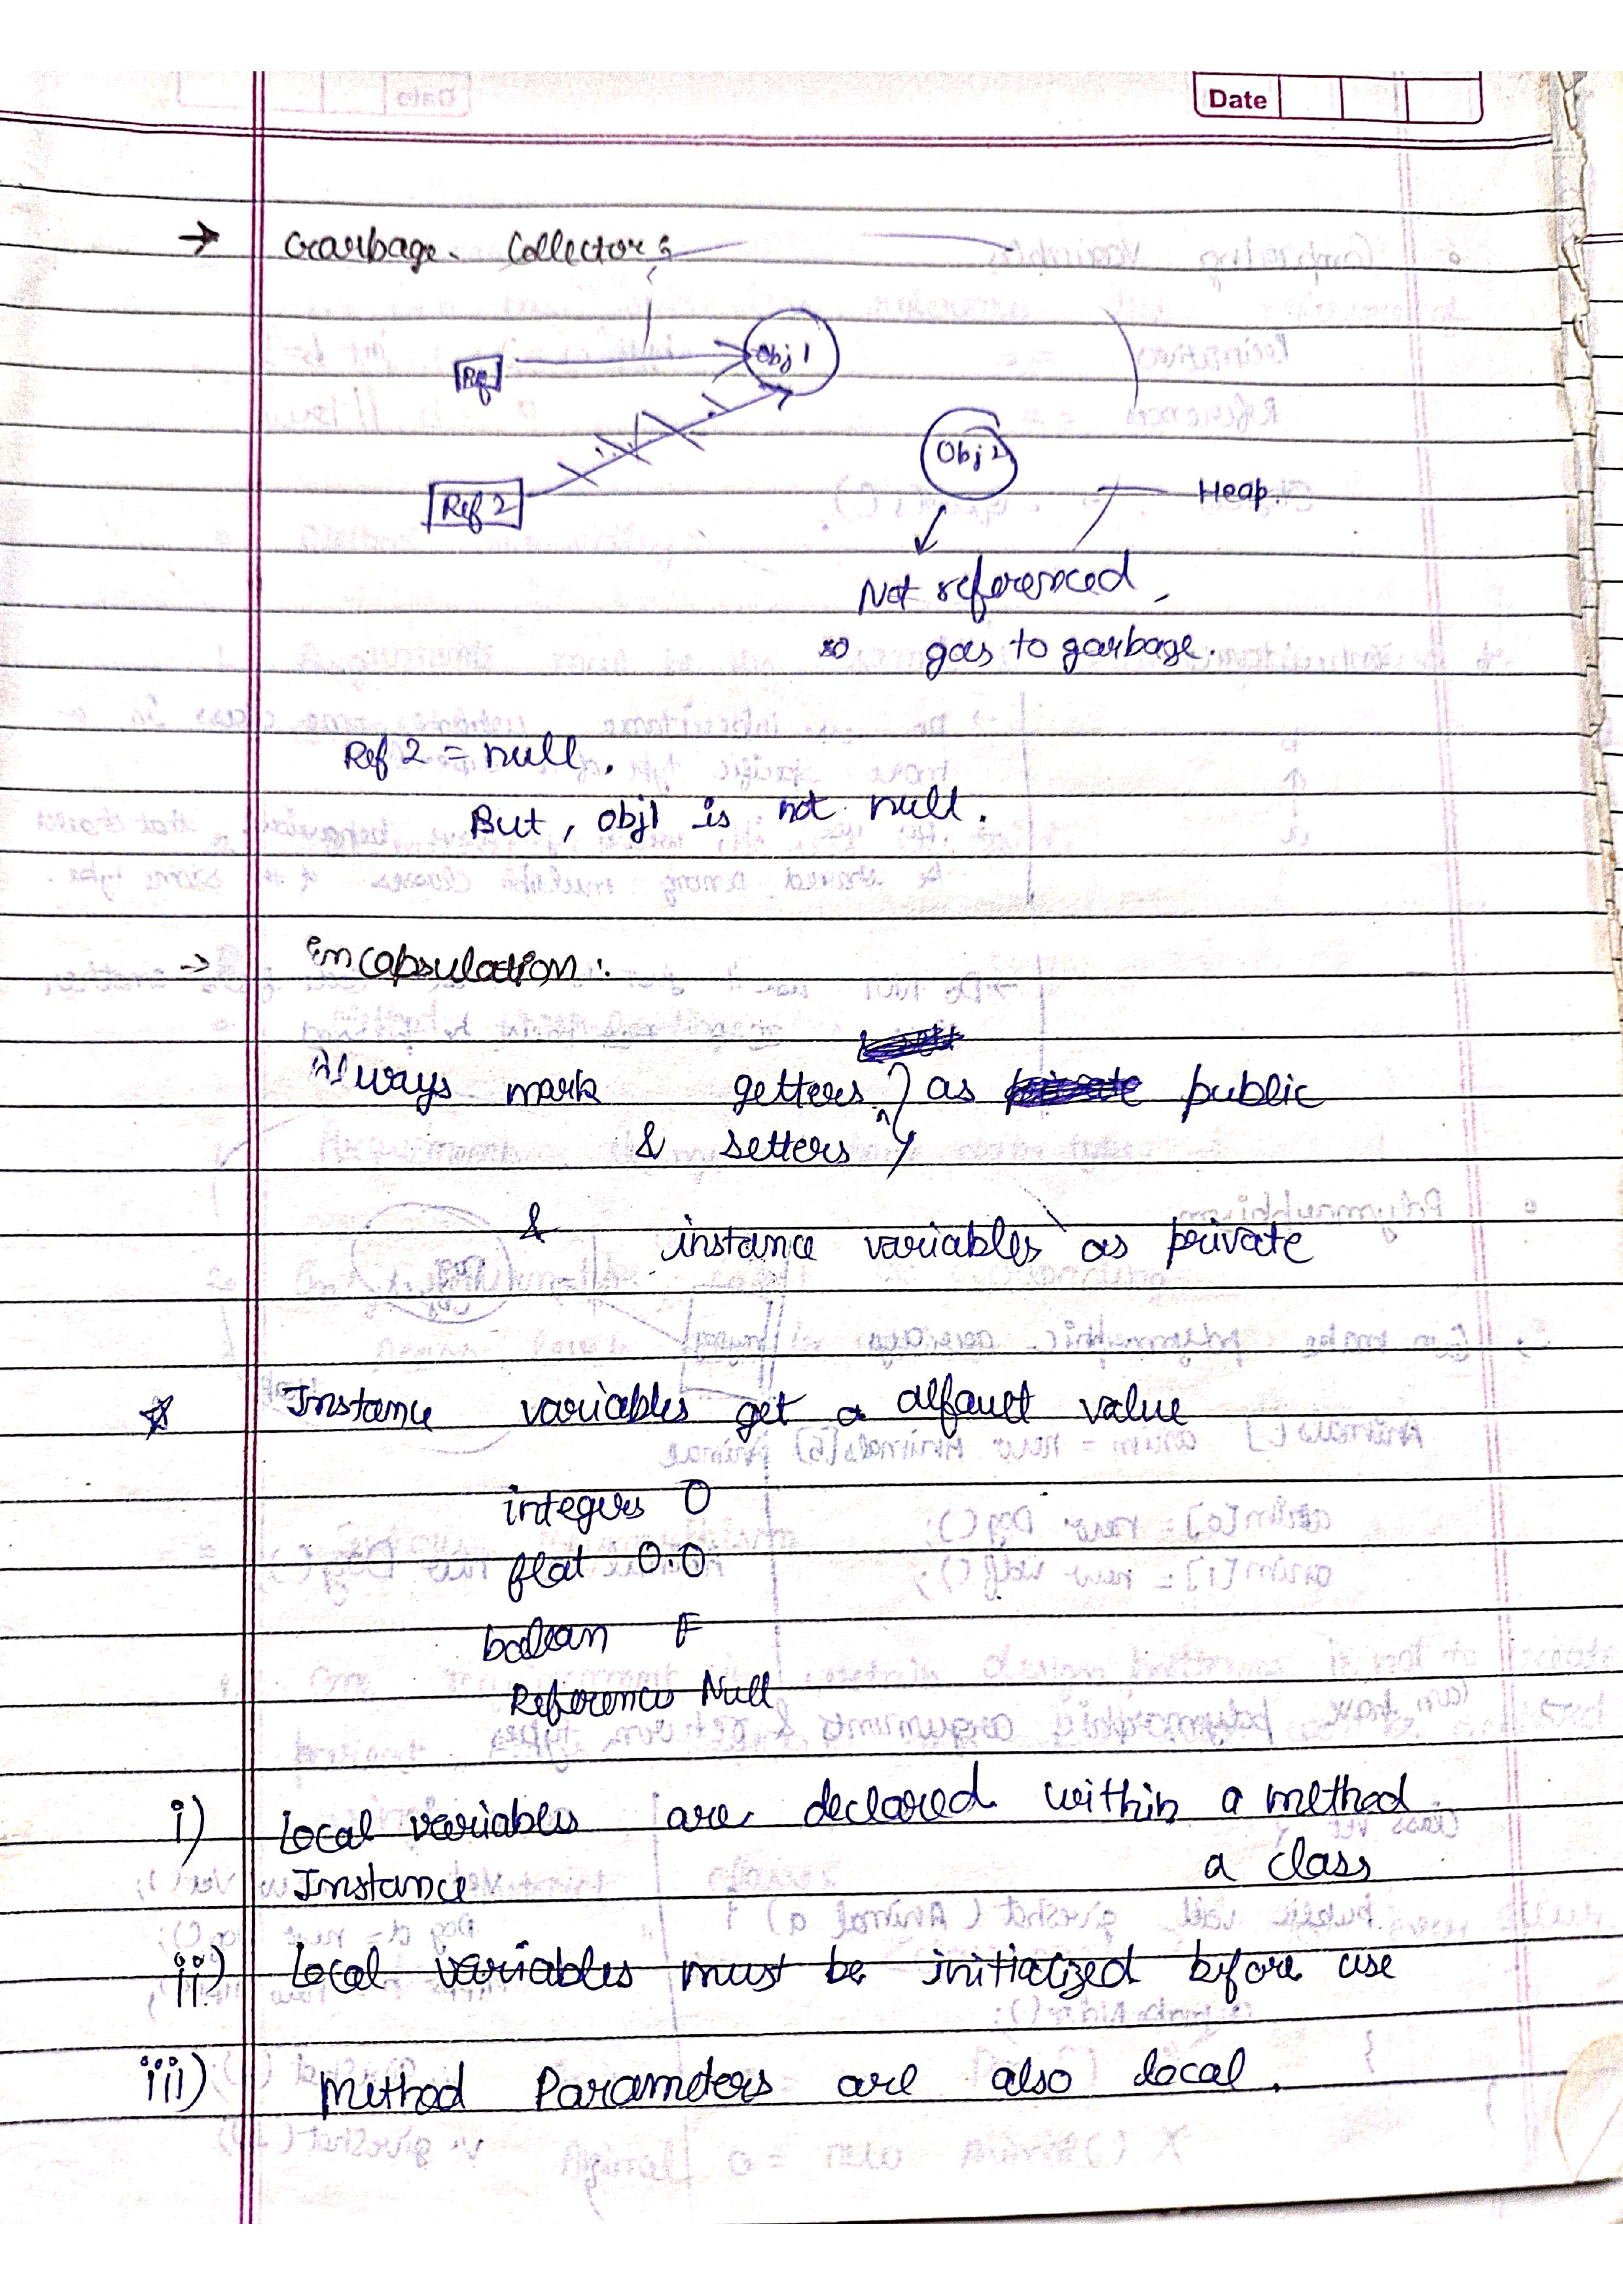 Date
→ Garbage Collector :
Ref
Obj 1
Obj 2
Ref 2
Heap.
Not referenced,
so goes to garbage.
Ref 2 = null.
But, obj1 is not null.
→ Encapsulation :
Always mark getters } as public
& setters }
& instance variables as private
☆ Instance variables get a alfault value
integers 0
float 0.0
bolean F
References Null
i) Local variables are declared within a method
Instance a class
ii) Local variables must be initialized before use
iii) Method Parameters are also local.